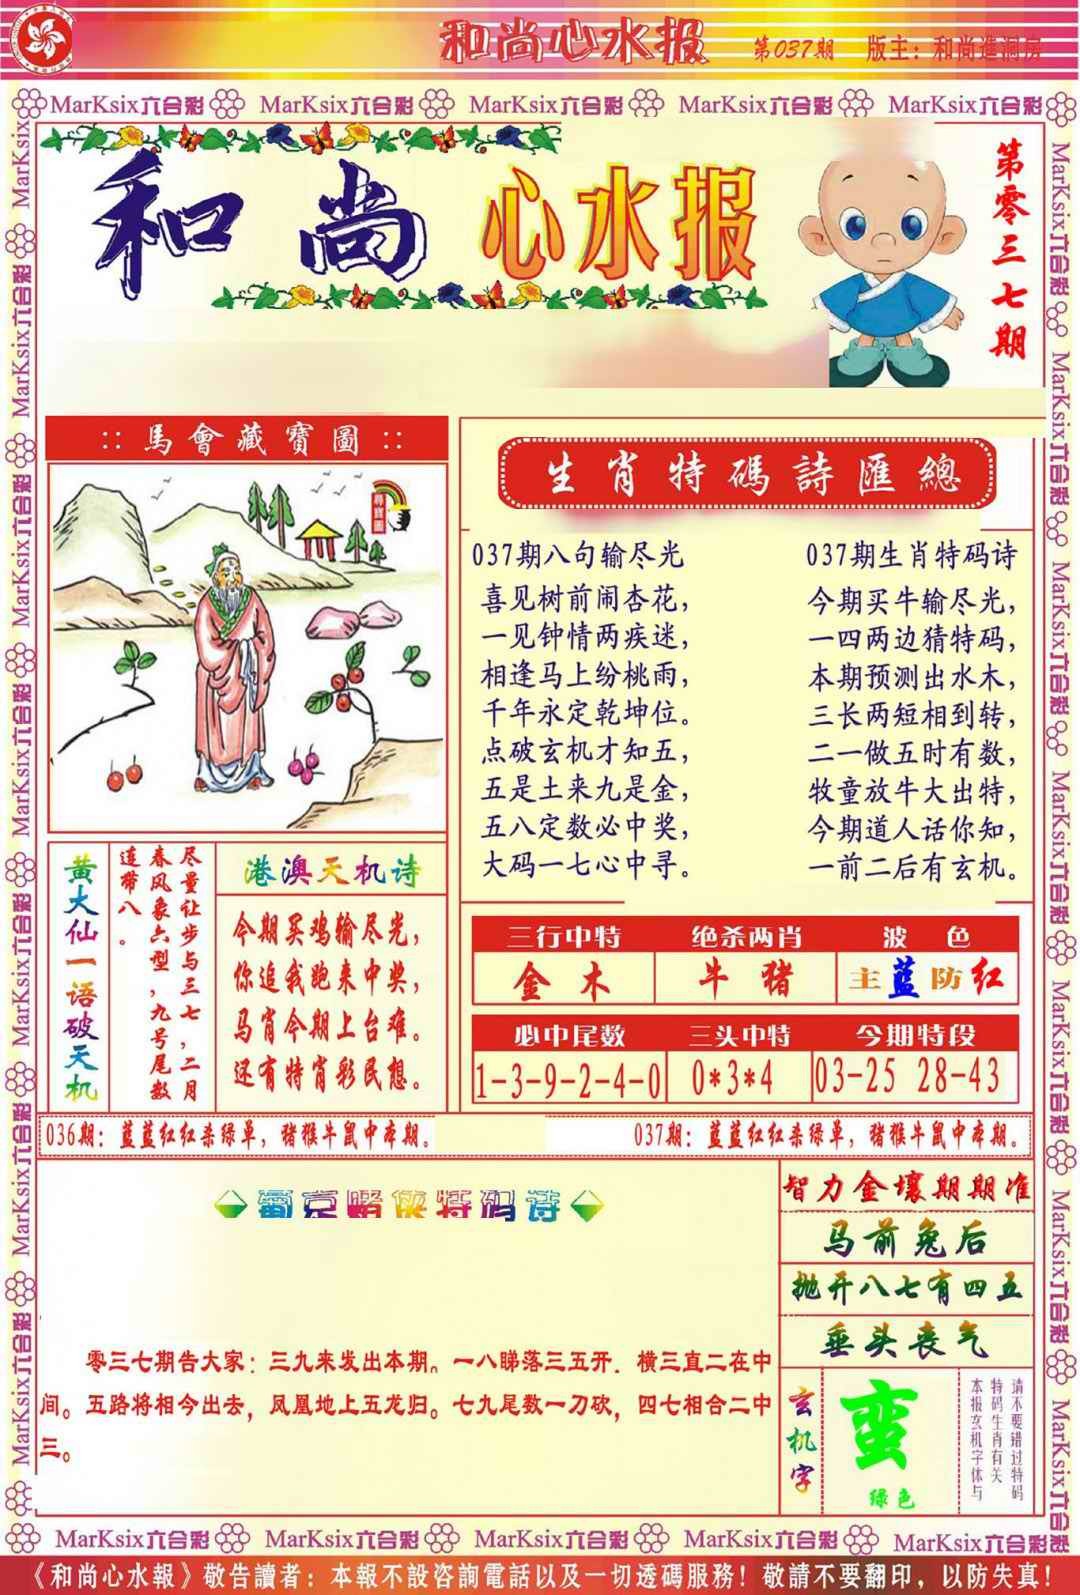 和尚心水报 第037期 版主：和尚進洞房
MarKsix六合彩 MarKsix六合彩 MarKsix六合彩 MarKsix六合彩 MarKsix六合彩
和尚心水报
第零三七期
::馬會藏寶圖::
尋寶圖
生肖特碼詩匯總
037期八句输尽光
喜见树前闹杏花，
一见钟情两疾迷，
相逢马上纷桃雨，
千年永定乾坤位。
点破玄机才知五，
五是土来九是金，
五八定数必中奖，
大码一七心中寻。
037期生肖特码诗
今期买牛输尽光，
一四两边猜特码，
本期预测出水木，
三长两短相到转，
二一做五时有数，
牧童放牛大出特，
今期道人话你知，
一前二后有玄机。
黄大仙一语破天机
尽量让步与三七，二月
春风象六型，九号尾数
连带八。
港澳天机诗
今期买鸡输尽光，
你追我跑来中奖，
马肖今期上台难。
还有特肖彩民想。
三行中特 绝杀两肖 波色
金木 牛猪 主蓝防红
必中尾数 三头中特 今期特段
1-3-9-2-4-0 0*3*4 03-25 28-43
036期：蓝蓝红红杀绿单，猪猴牛鼠中本期。
037期：蓝蓝红红杀绿单，猪猴牛鼠中本期。
葡京赌侠特码诗
零三七期告大家：三九来发出本期。一八睇落三五开．横三直二在中
间。五路将相今出去，凤凰地上五龙归。七九尾数一刀砍，四七相合二中
三。
智力金壤期期准
马前兔后
抛开八七有四五
垂头丧气
玄机字
蛮
绿色
请不要错过特码
特码生肖有关
本报玄机字体与
MarKsix六合彩 MarKsix六合彩 MarKsix六合彩 MarKsix六合彩 MarKsix六合彩
《和尚心水報》敬告讀者：本報不設咨詢電話以及一切透碼服務！敬請不要翻印，以防失真！